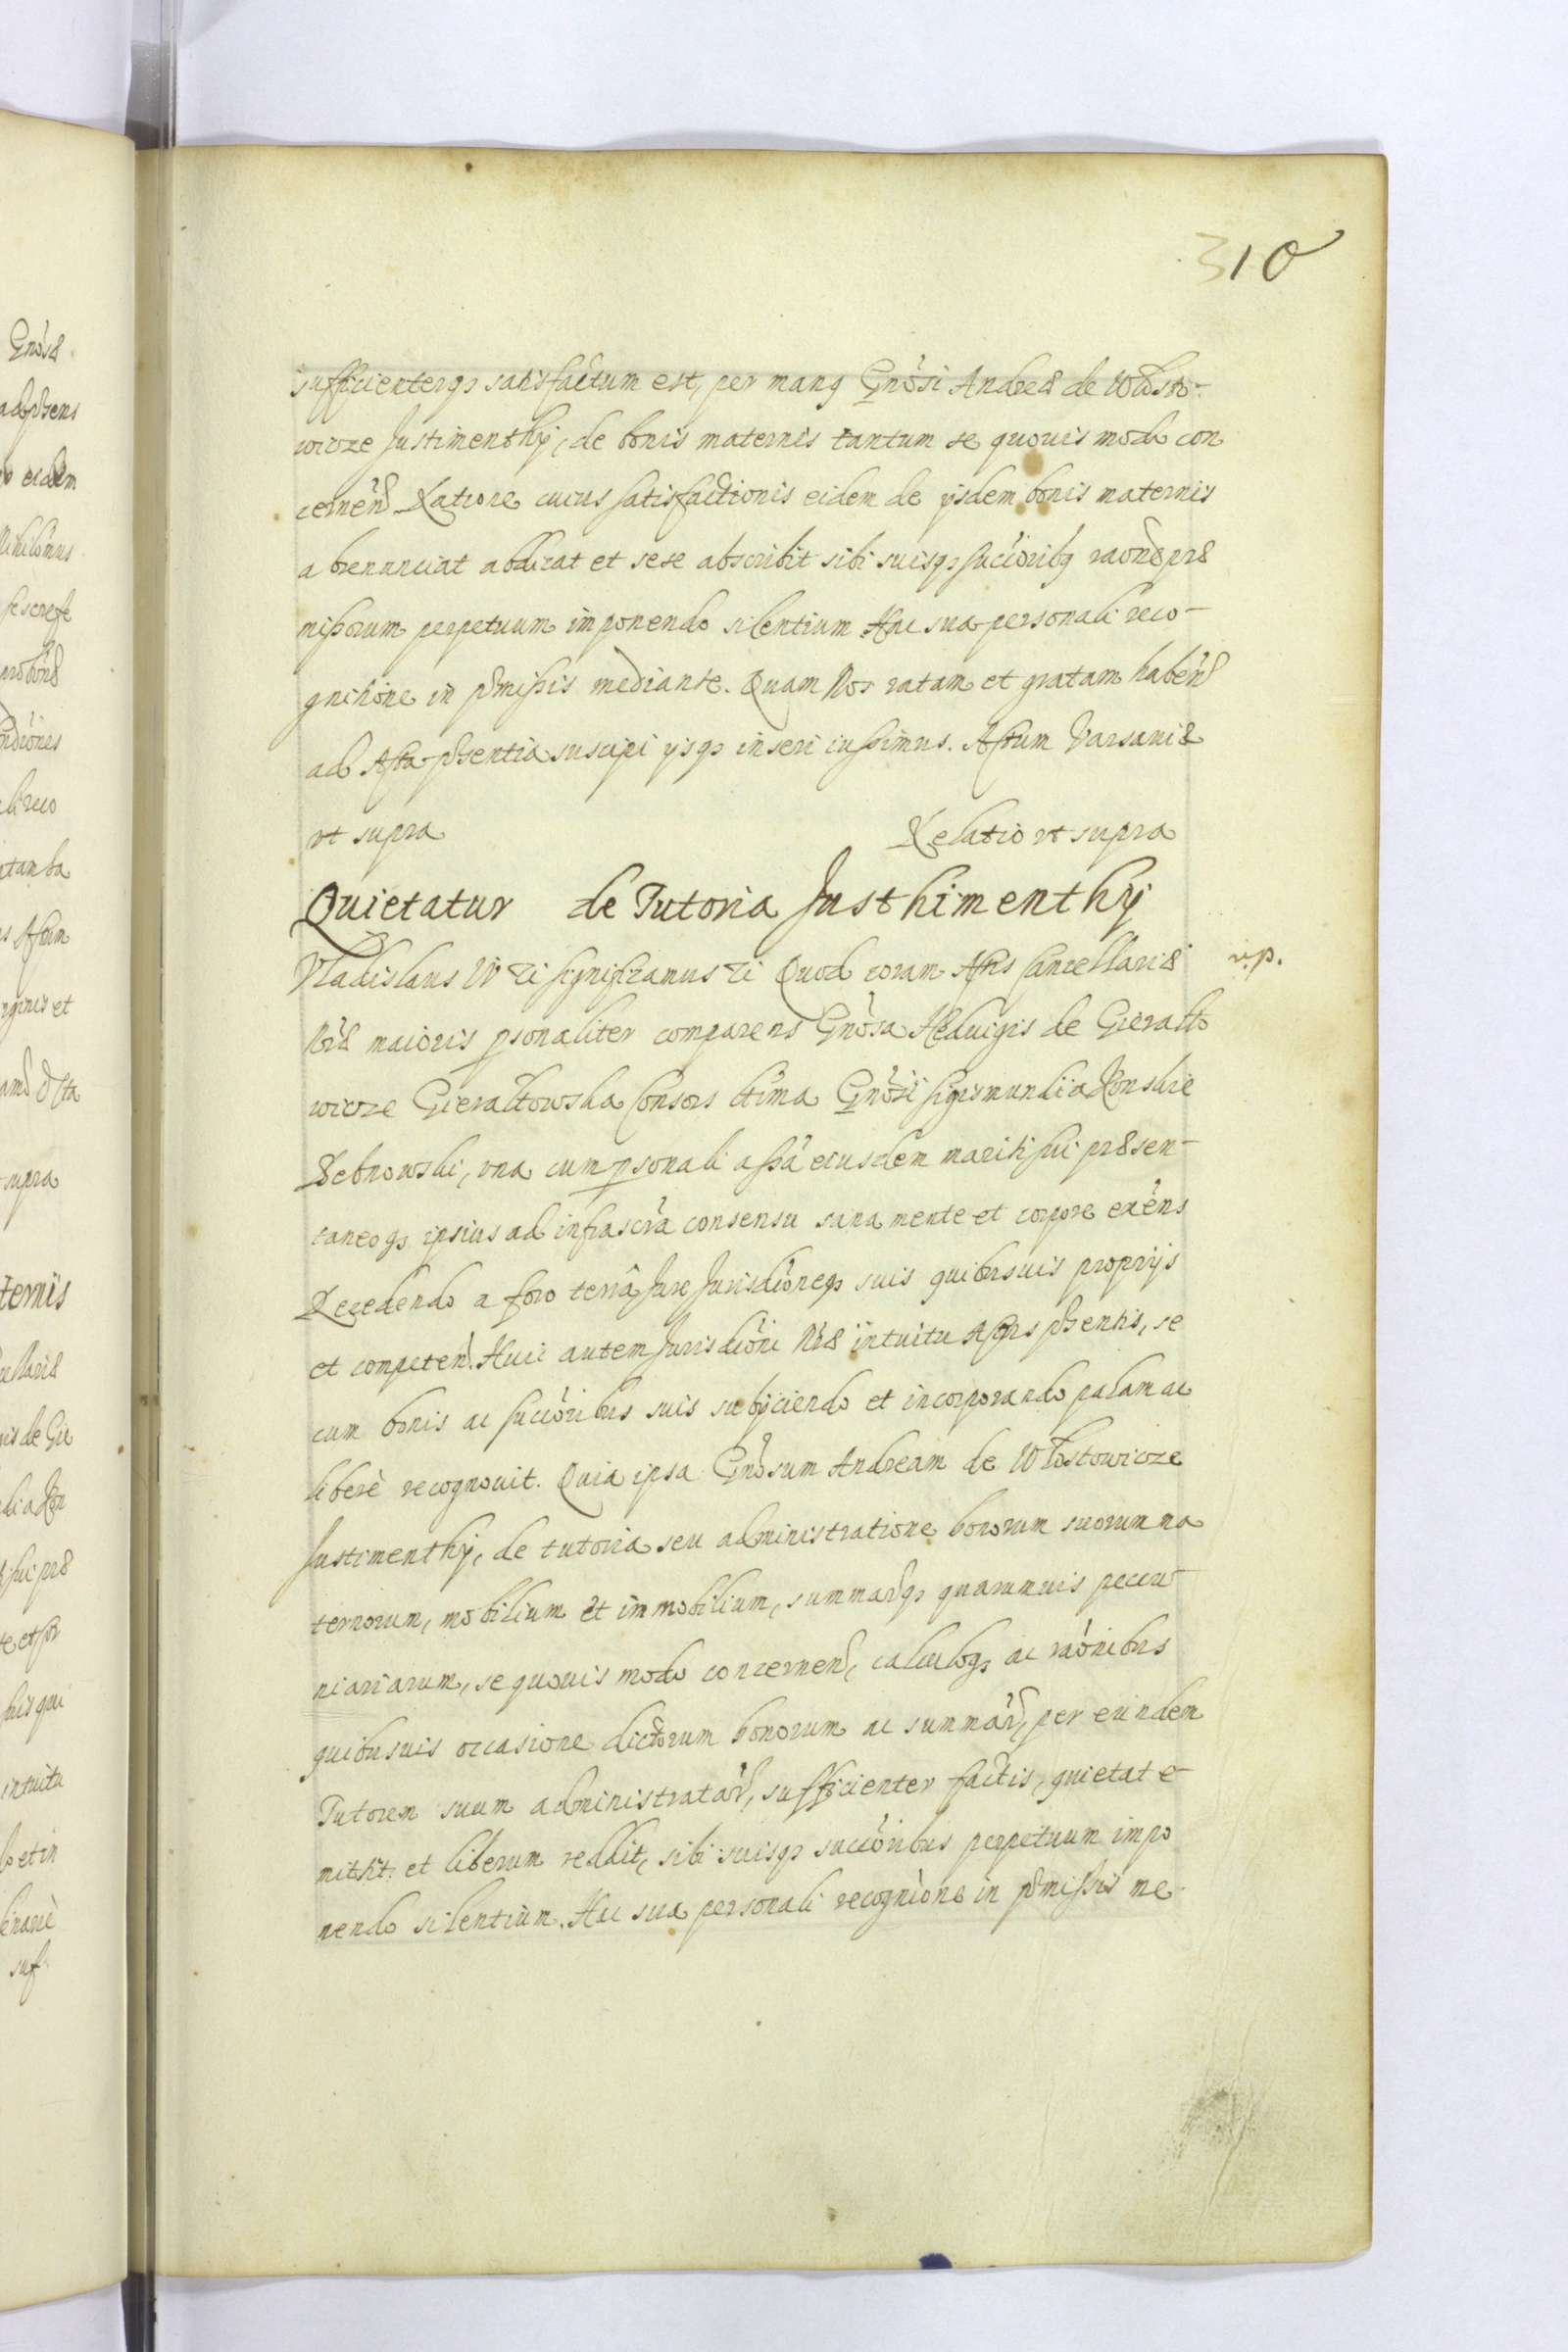 310
sufficienterqꝫ satisfactum est, per manꝰ Gnosi Andreæ de Włosto-
wicze Justimenthÿ, de bonis maternis tantum se quouis modo con
cernen̄ Ratione cuius satisfactionis eidem de ijsdem bonis maternis
abrenunciat abdicat et sese abscribit sibi suisqꝫ succoribꝰ raone præ
missorum perpetuum imponendo silentium Hac sua personali reco-
gnitione in pmissis mediante. Quam Nos ratam et gratam haben̄
ad Acta pntia suscipi ijsqꝫ inseri iussimus. Actum Varsauiæ
vt supra Relatio vt supra
Quietatur de Tutoria Justhimenthÿ
Vladislaus IV etc significamus etc Quod coram Actis Cancellariæ v.p.
Nræ maioris psonaliter comparens Gnosa Heduigis de Gierałto
wicze Gierałtowska Consors ltima Gnosi Sigismundi a Konskie
Debnowski, vna cum psonali assa eiusdem mariti sui præsen-
taneoqꝫ ipsius ad infrascra consensu sana mente et corpore exens
Recedendo a foro terra Jure Jurisdioneqꝫ suis quibusuis proprijs
et competen̄. Huic autem Jurisdioni Nræ intuitu Actus pntis, se
cum bonis ac succoribus suis subijciendo et incorporando palam ac
liberè recognouit. Quia ipsa Gnosum Andream de Włostowicze
Justimenthÿ, de tutoria seu administratione bonorum suorum ma
ternorum, mobilium et immobilium, summarqꝫ quarumuis pecu-
niariarum, se quouis modo concernen̄, calculoqꝫ ac raonibus
quibusuis occasione dictorum bonorum ac summar, per eundem
Tutorem suum administratar, sufficienter factis, quietat e-
mittit et liberum reddit, sibi suisqꝫ succoribus perpetuum impo
nendo silentium. Hac sua personali recognione in pmissis me-